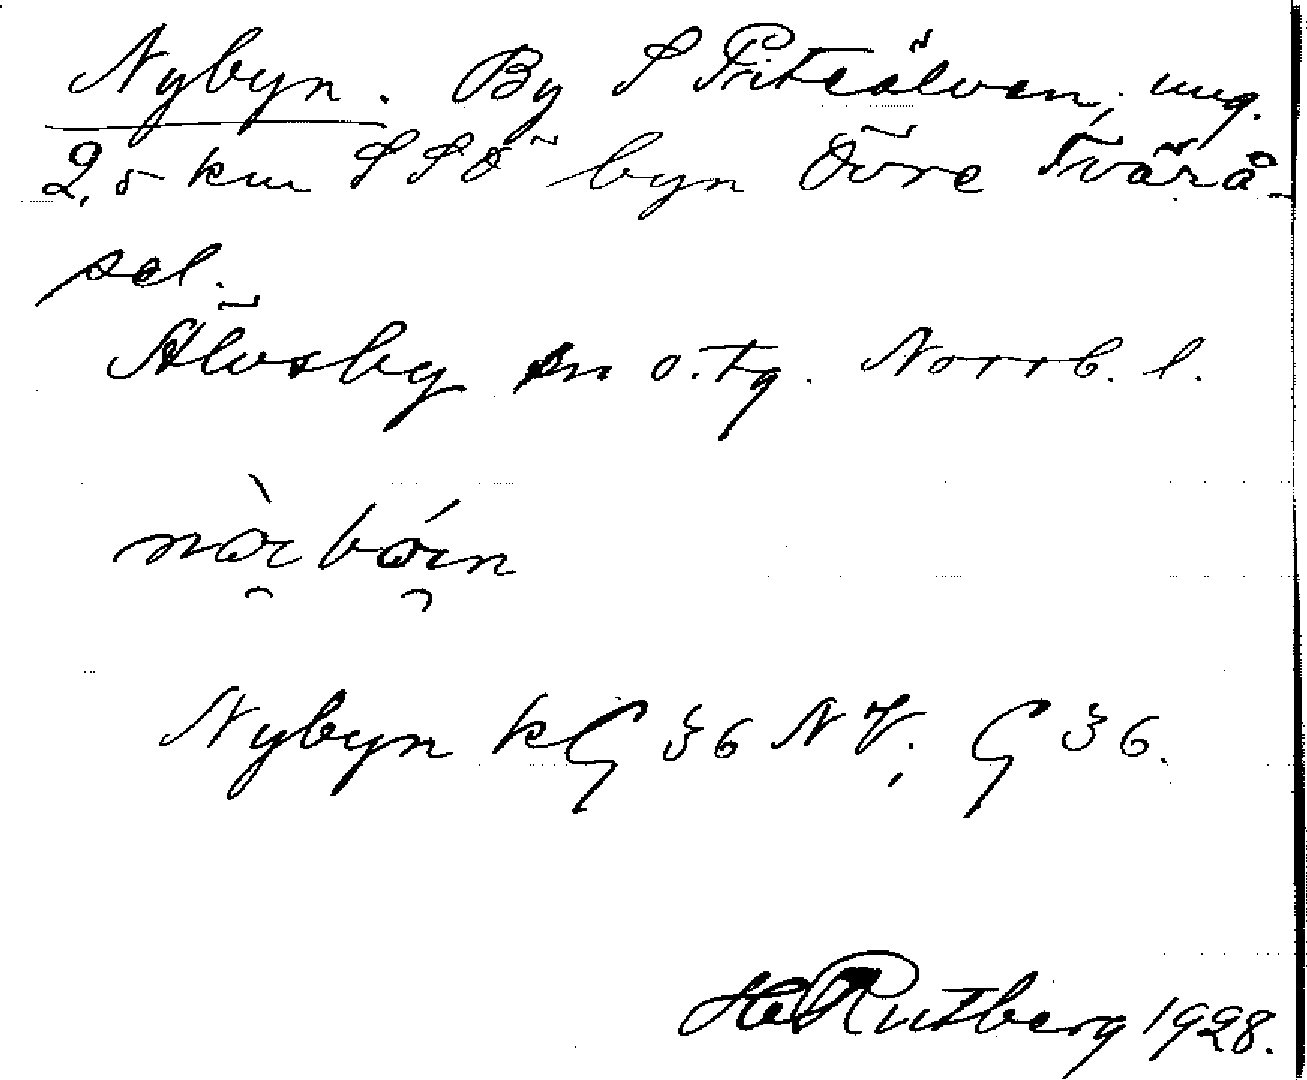 Nybyn. By S Piteälven, ung.
2,5 km SSÖ byn Övre Tvärå-
sel.
Älvsby sn o. tg. Norrb. l.
Nybyn kG 36 NV; G 36.
Hd Rutberg 1928.